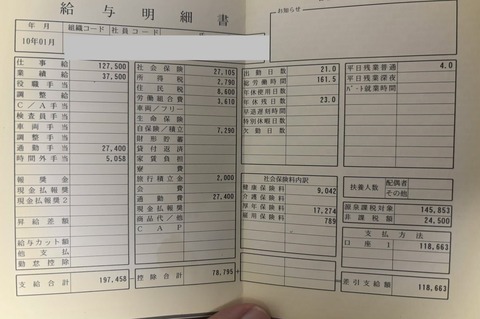 給与明細書
お知らせ
年月 組織コード 社員コード
10年01月
仕事給 127,500
業績給 37,500
役職手当
調整給
C/A手当
検査員手当
車両手当
調整手当
通勤手当 27,400
時間外手当 5,058
報奨金
現金払報奨
現金払報奨2
昇給差額
給与カット額
他支払
勤怠控除
支給合計 197,458
社会保険 27,105
所得税 2,790
住民税 8,600
労働組合費 3,610
車両/フリー
生命保険
自保険/積立 7,290
財形貯蓄
貸付返済
家賃負担
寮費
旅行積立金 2,000
会費
通勤費 27,400
現金払報奨
商品代/他
CAP
控除合計 78,795
出勤日数 21.0
総労働時間 161.5
年休使用日数
年休残日数 23.0
早退遅刻時間
特別休暇日数
欠勤日数
社会保険料内訳
健康保険料 9,042
介護保険料
厚年保険料 17,274
雇用保険料 789
平日残業普通 4.0
平日残業深夜
パート就業時間
扶養人数 配偶者
その他
源泉課税対象 145,853
非課税額 24,500
支払方法
口座1 118,663
差引支給額 118,663